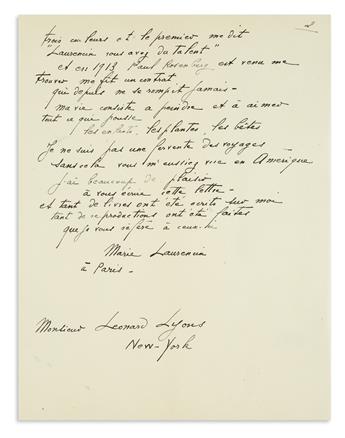 2
trois couleurs et le premier me dit
"Laurencin vous avez du talent"
et en 1913 Paul Rosenberg est venu me
trouver me fit un contrat
qui depuis ne se rompit jamais -
ma vie consiste a peindre et à aimer
tout ce que pousse
les enfants, les plantes, les bêtes
Je ne suis pas une fervente des voyages
sans cela vous m'eussiez vue en Amérique
j'ai beaucoup de plaisir
à vous écrire cette lettre -
et tant de livres ont été écrits sur moi
tant de reproductions ont été faites
que je vous réfère à ceux-là
Marie Laurencin
à Paris -
Monsieur Leonard Lyons
New-York